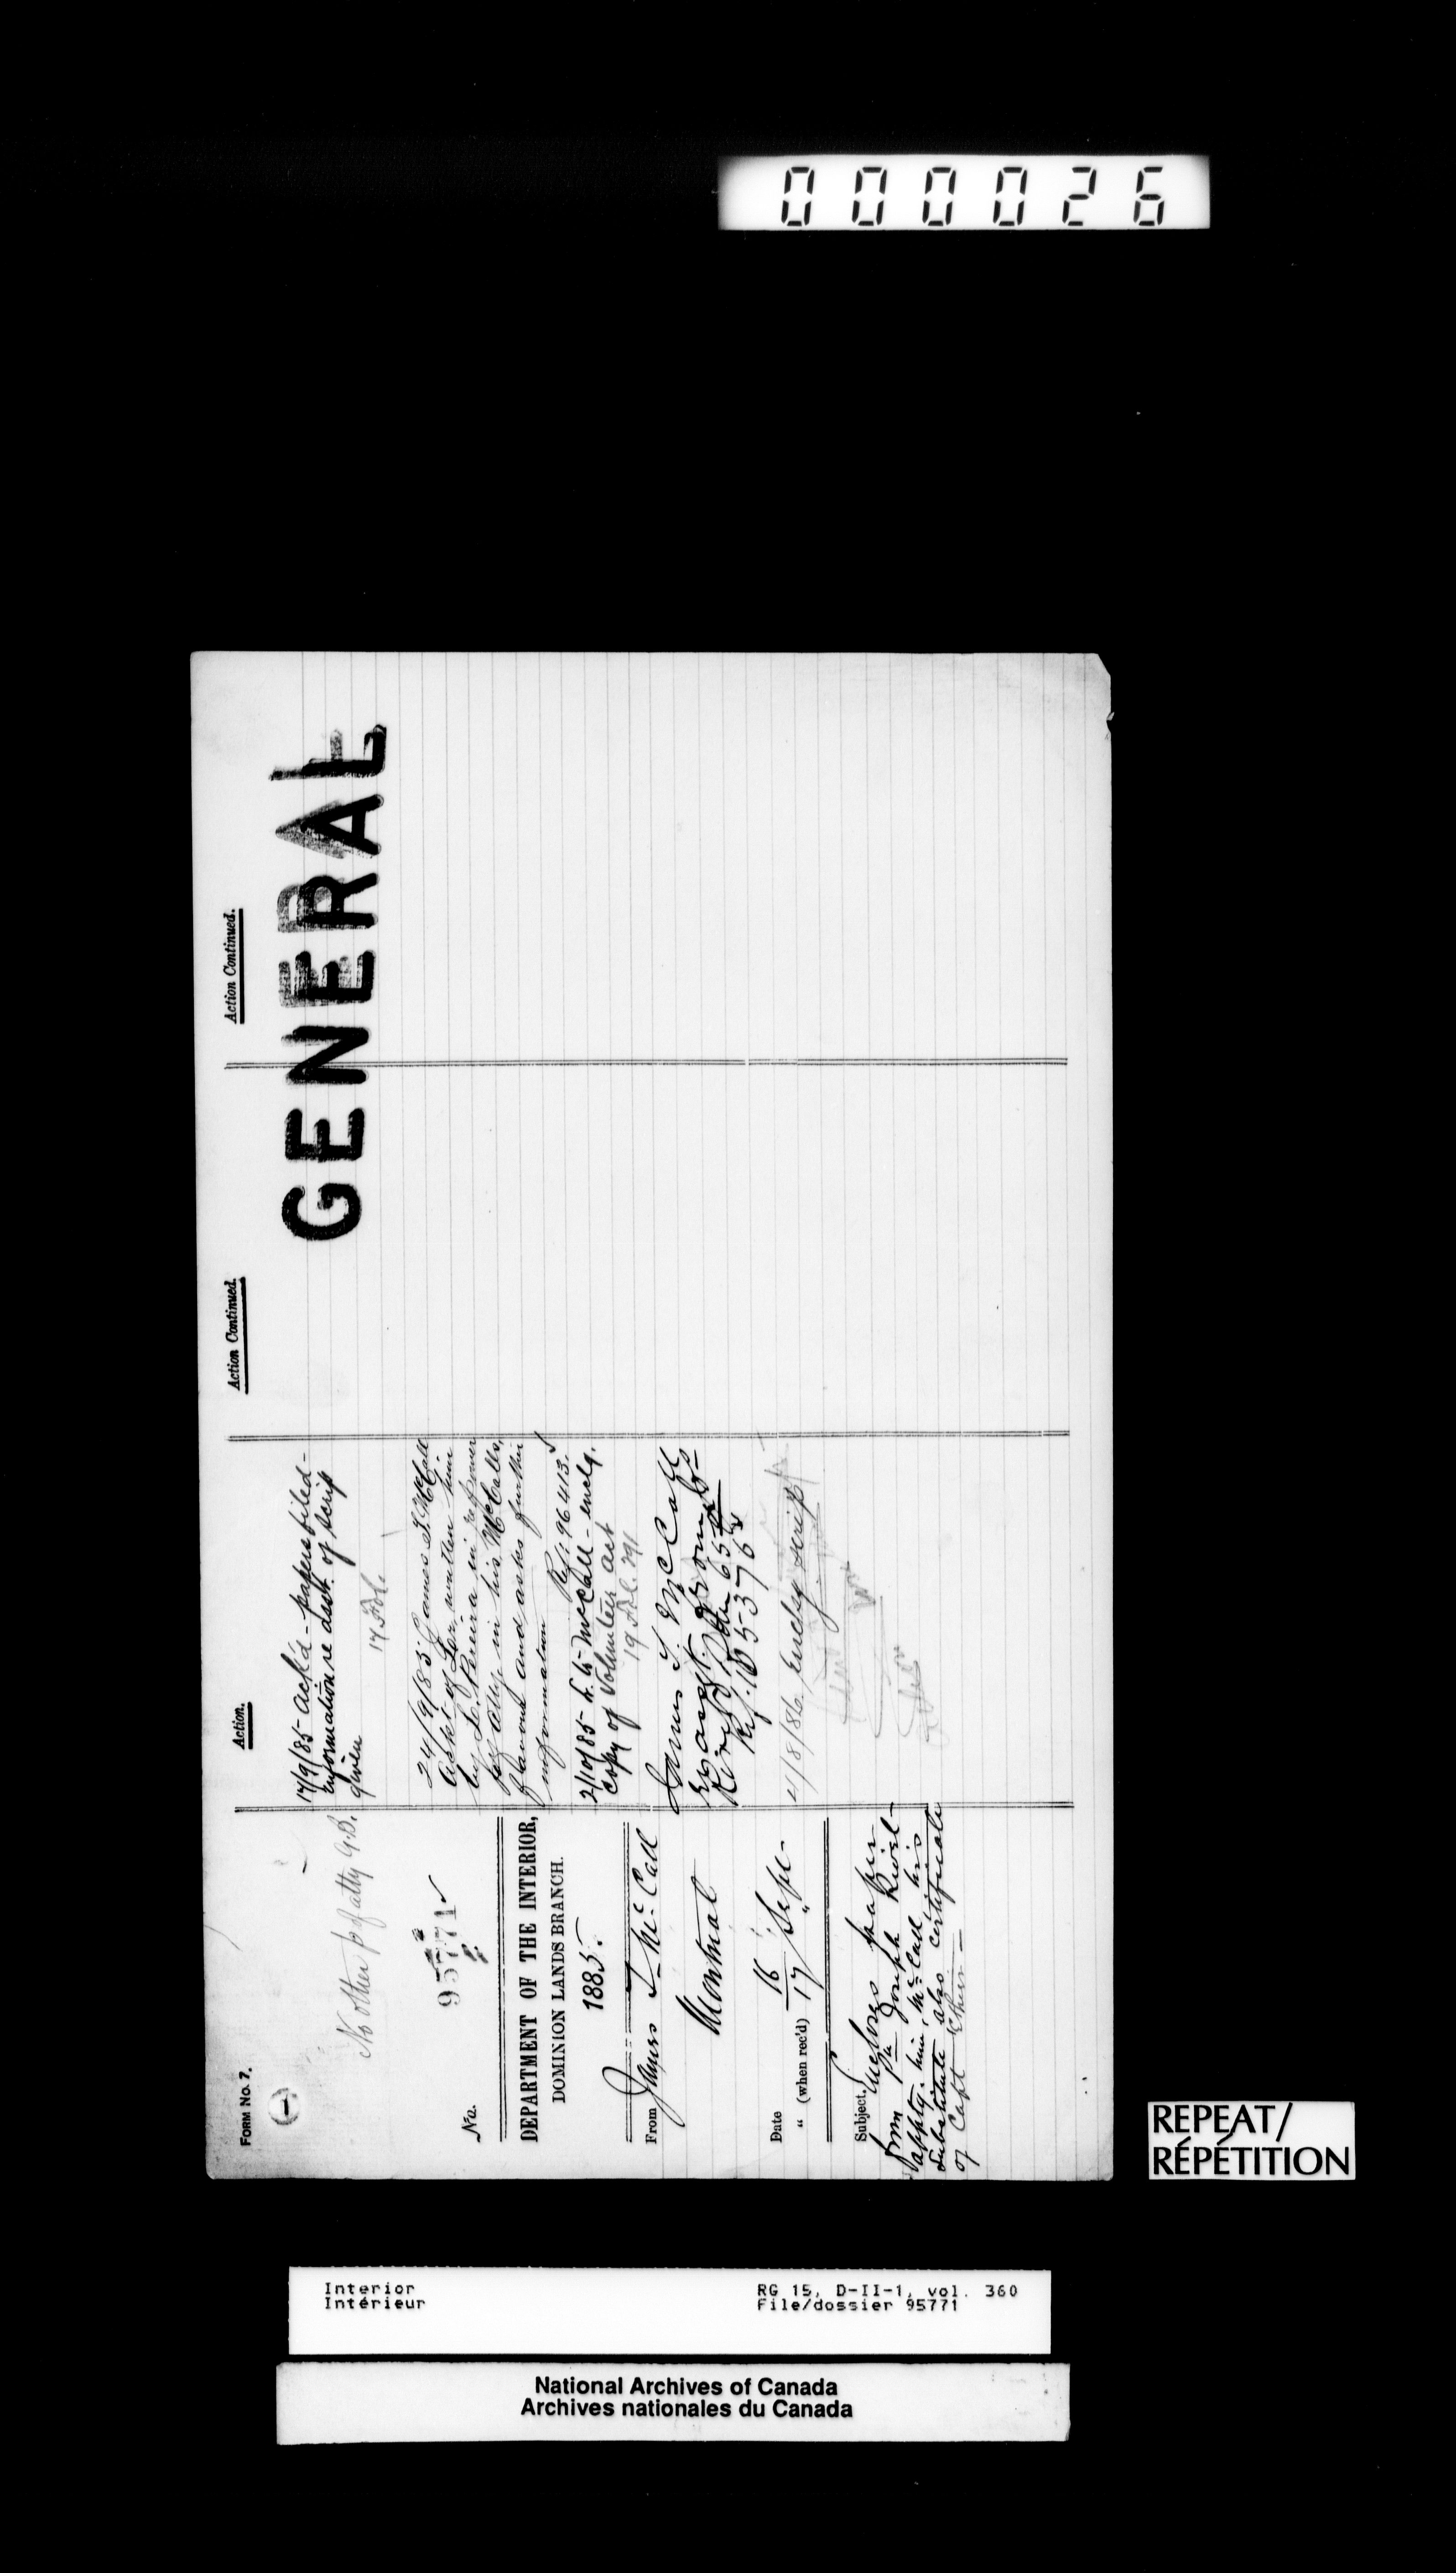 000026
FORM No. 7.
1
No other p of atty G.B.
No. 95771
DEPARTMENT OF THE INTERIOR,
DOMINION LANDS BRANCH.
1885.
From James T. McCall
Montreal
Date 16 Sept
" (when rec'd) 17 "
Subject. Encloses paper
from Pte Joseph
appltg. him, McCall his
substitute also certificate
of Capt
Action.
17/9/85 - Ack'd - papers filed -
information re dist. of scrip
given
24/9/85 James T. McCall
asks if written him
by L. Pereira in re power
of atty in his McCall's,
favour and asks further
information Ref. 96413.
2/10/85 - McCall - enclg.
copy of Volunteer act
James T. McCall
65th
Ref. 105376
4/8/86. Enclg scrip
Action Continued.
Action Continued.
GENERAL
REPEAT/
RÉPÉTITION
Interior
Intérieur
RG 15, D-II-1, vol. 360
File/dossier 95771
National Archives of Canada
Archives nationales du Canada